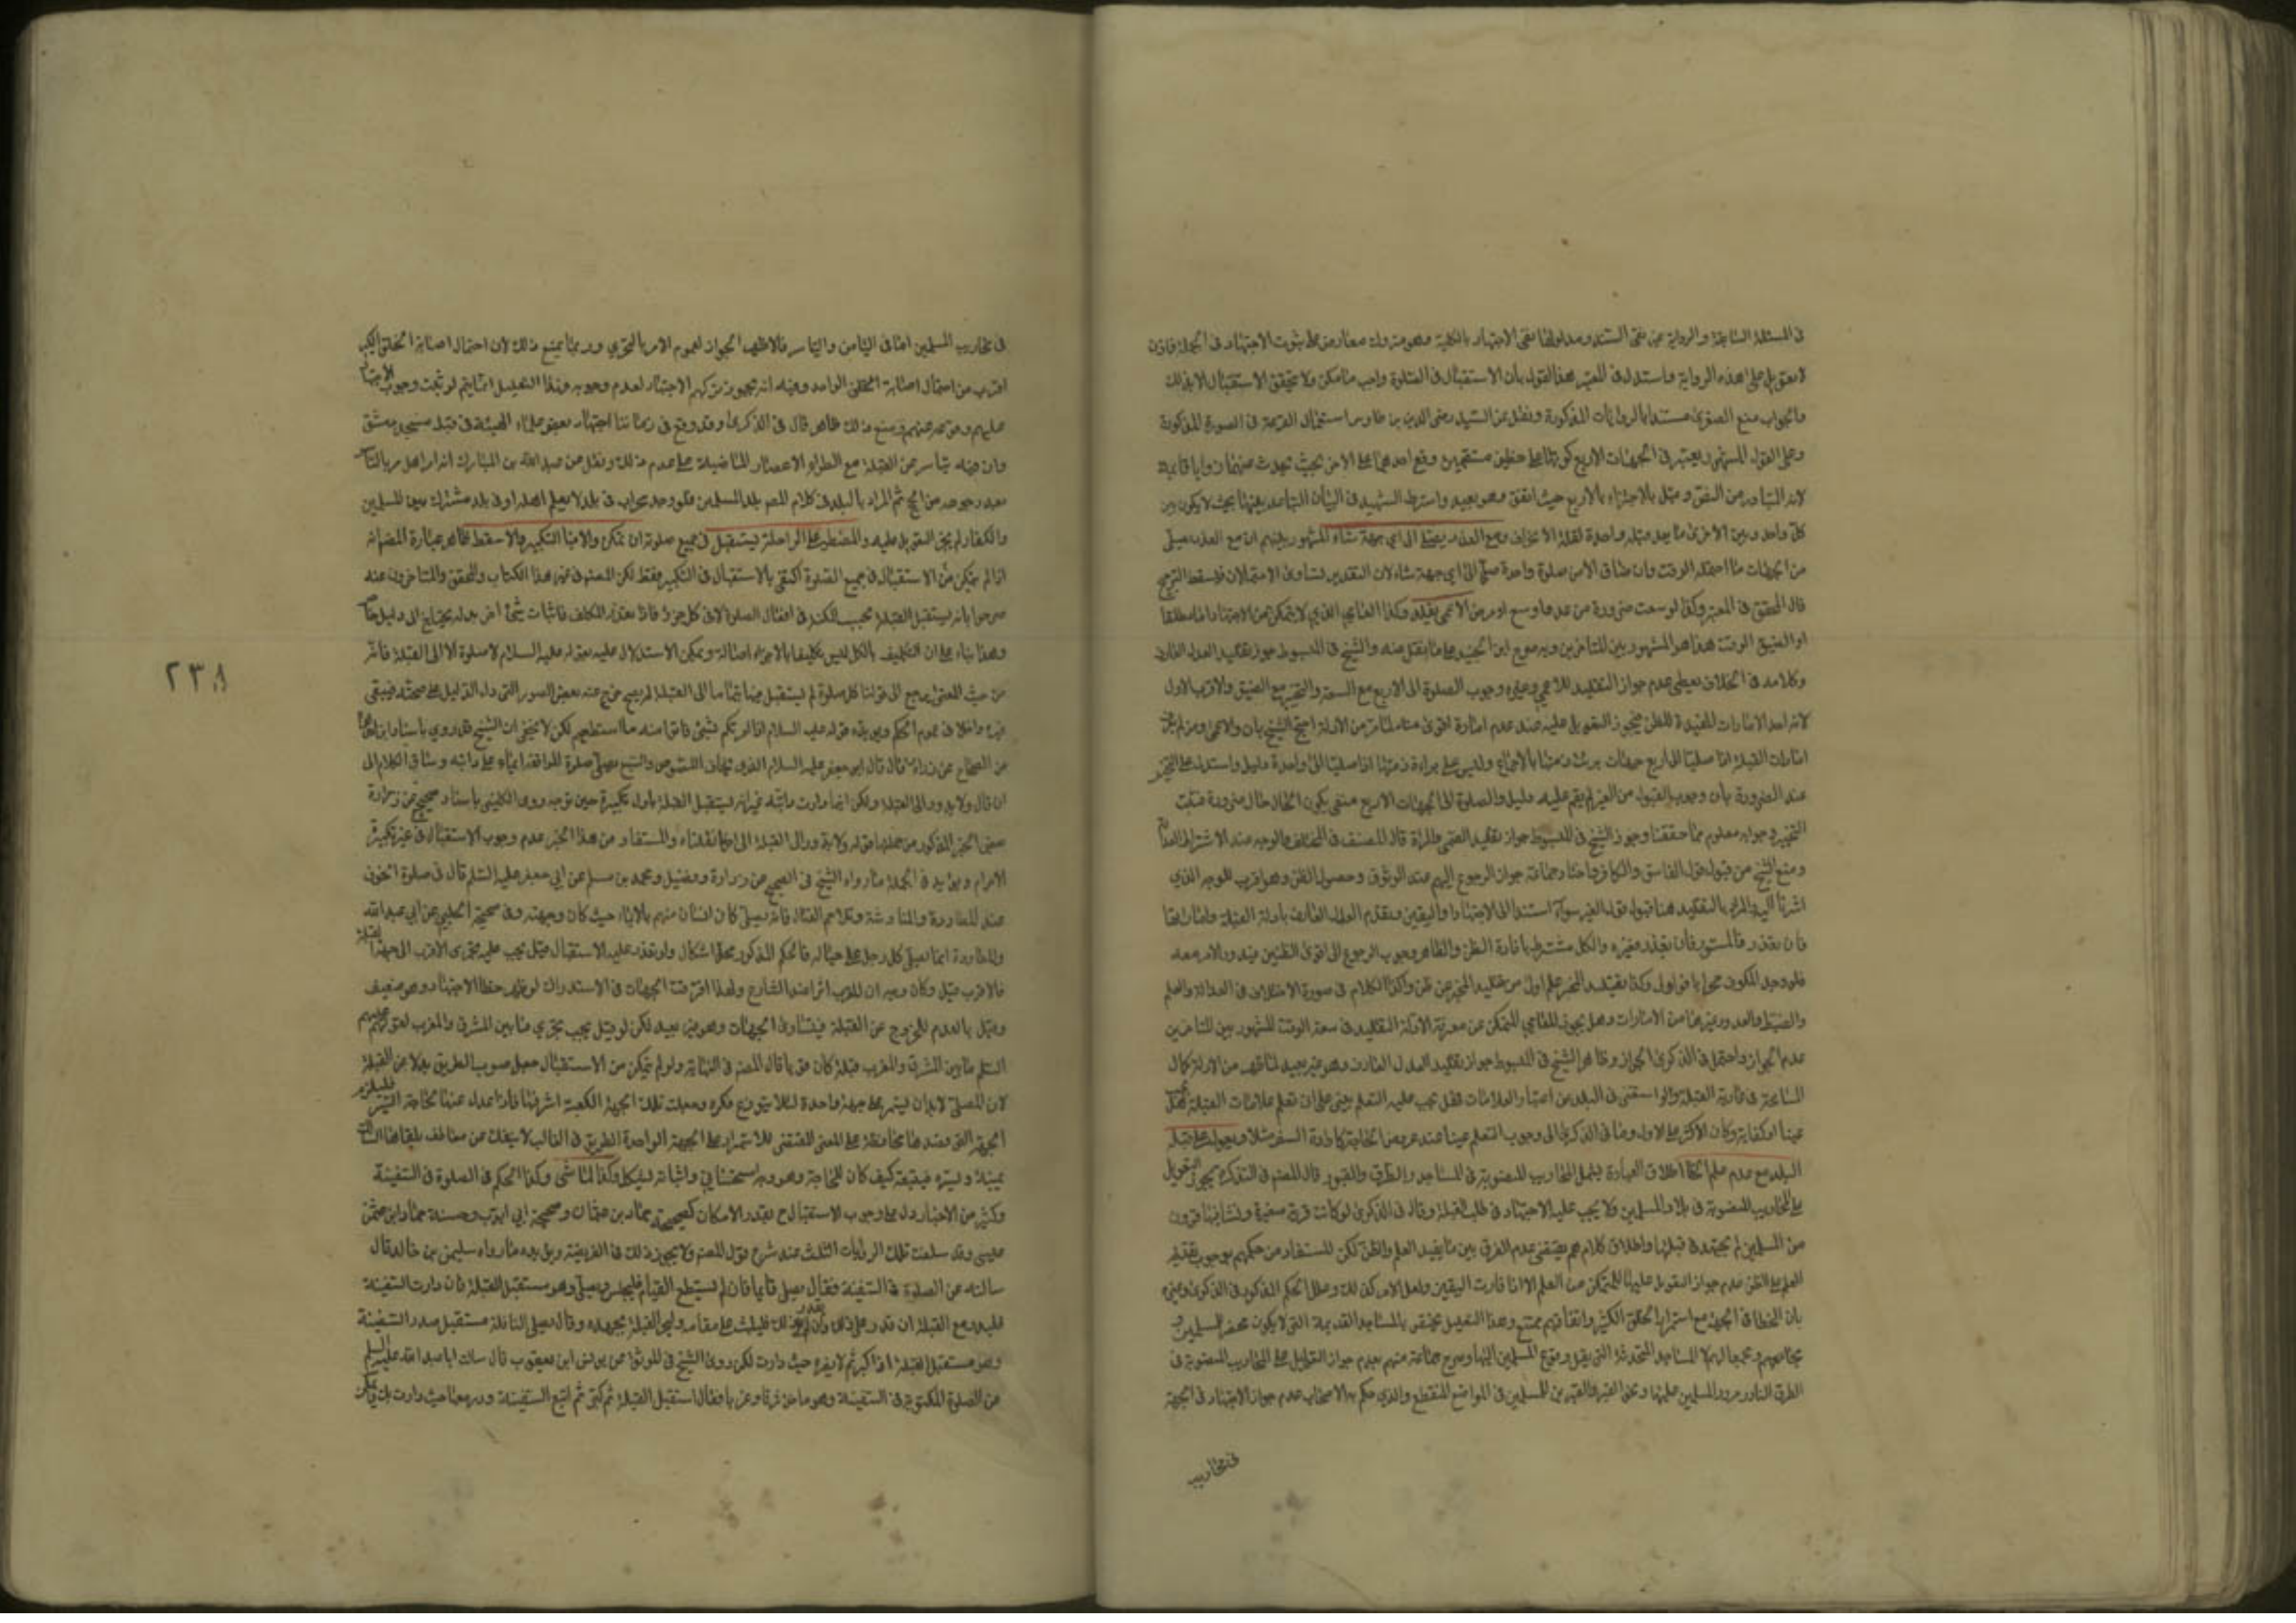 في المسئلة السابقة والرواية عن نقى السند ومدلولها نفى الاجتهاد بالكلية وهو متروك معارض بما يثبت الاجتهاد في الجملة فاذن
لا تعويل على هذه الرواية واستدل في المعتبر لهذا القول بان الاستقبال في الصلوة واجب ما امكن ولا يتحقق الاستقبال الا بذلك
والجواب منع الصغرى مستندا بالروايات المذكورة ونقل عن السيد رضي الدين بن طاوس استعمال القرعة في الصورة المذكورة
وعلى القول المشهور يعتبر في الجهات الاربع كونها على خطين مستقيمين وقع احدهما على الاخر بحيث تحدث عنهما زوايا قائمة
لانه المتبادر من النص وقيل بالاجتزاء بالاربع حيث اتفق وهو بعيد واشترط الشهيد في البيان التباعد بينها بحيث لا يكون بين
كل واحد وبين الاخرى ما يعد قبلة واحدة لقلة الانحراف ومع العذر يصلي الى اي جهة شاء المشهور بينهم ان مع العذر يصلي
من الجهات ما احتمله الوقت وان ضاق الا عن صلوة واحدة صلى الى اي جهة شاء لان التقدير تساوي الاحتمالات فيسقط الترجيح
قال المحقق في المعتبر وكذا لو منعت ضرورة من عدو او سبع او مرض الاعمى يقلد وكذا العامي الذي لا يتمكن من الاجتهاد اما مطلقا
او لضيق الوقت هذا هو المشهور بين المتاخرين وبه صرح ابن الجنيد على ما نقل عنه والشيخ في المبسوط جوز تقليد العدل العارف
وكلامه في الخلاف يعطي عدم جواز التقليد للاعمى وغيره وجوب الصلوة الى الاربع مع السعة والتخيير مع الضيق والاقرب الاول
لانه احد الامارات المفيدة للظن فيجوز التعويل عليه عند عدم امارة اقوى منه لما مر من الادلة احتج الشيخ بان الاعمى ومن لم يعرف
امارات القبلة اذا صليا الى اربع جهات برئت ذمتهما بالاجماع وليس على براءة ذمتهما اذا صليا الى واحدة دليل واستدل على التخيير
عند الضرورة بان وجوب القبول من الغير لم يقم عليه دليل والصلوة الى الجهات الاربع منفى بكون الحال حال ضرورة فثبت
التخيير وجوابه معلوم مما حققنا وجوز الشيخ في المبسوط جواز تقليد الصبي والمراة قال المصنف في المختلف والوجه عندي اشتراط العدالة
ومنع الشيخ من قبول قول الفاسق والكافر واختار جماعة جواز الرجوع اليهم عند الوثوق وحصول الظن وهو اقرب للوجه الذي
اشرنا اليه والمراد بالتقليد هنا قبول قول الغير سواء استند الى الاجتهاد او اليقين ويقدم العدل العارف بادلة القبلة واماراتها
فان تعذر فالمستور فان تعذر فغيره والكل مشترط بافادة الظن والظاهر وجوب الرجوع الى اقوى الظنين فيدور الامر معه
فلو وجد المكفوف محرابا فهو اولى وكذا تقليد المخبر عن علم اولى من تقليد المخبر عن ظن وكذا الكلام في صورة الاختلاف في العدالة والعلم
والضبط والعدد وغيرها من الامارات وهل يجوز للعامي المتمكن من معرفة الادلة التقليد في سعة الوقت المشهور بين المتاخرين
عدم الجواز واحتمل في الذكرى الجواز وظاهر الشيخ في المبسوط جواز تقليد العدل العارف وهو غير بعيد لما ظهر من الادلة كمال
المسامحة في مراعاة القبلة ولو استغنى في البلد عن اعتبار العلامات فهل يجب عليه التعلم يبنى على ان تعلم علامات القبلة هل يجب
عينا او كفاية وكان الاكثر على الاول ومال في الذكرى الى وجوب التعلم عينا عند عروض الحاجة كارادة السفر مثلا ويعول على قبلة
البلد مع عدم علم الخطا اطلاق العبارة يشمل المحاريب المنصوبة في المساجد والطرق والقبور قال المصنف في التذكرة يجوز التعويل
على المحاريب المنصوبة في بلاد المسلمين ولا يجب عليه الاجتهاد في طلب القبلة وقال في الذكرى لو كانت قرية صغيرة ونشا بها قرون
من المسلمين لم يجتهد في قبلتها واطلاق كلامهم يقتضي عدم الفرق بين ما يفيد العلم والظن لكن المستفاد من حكمهم بوجوب تقديم
العلم على الظن عدم جواز التعويل عليها للمتمكن من العلم الا اذا افادت اليقين ولعل الامر كذلك وعلل الحكم المذكور في الذكرى وغيره
بان الخطا في الجهة مع استمرار الخلق الكثير واتفاقهم ممتنع وهذا التعليل يختص بالمساجد القديمة التي لا يكون محض المسلمين
بخلاف المساجد المحدثة التي يقل وقوع المسلمين اليها وصرح جماعة منهم بعدم جواز التعويل على المحاريب المنصوبة في
الطرق النادر مرور المسلمين عليها ونحو القبر والقبرين للمسلمين في المواضع المنقطع والذي حكم به الاصحاب عدم جواز الاجتهاد في الجهة
في محاريب
في محاريب المسلمين اما في التيامن والتياسر فالاظهر الجواز لعموم الامر بالتحري وربما يمنع ذلك لان احتمال اصابة الخلق الكثير
اقرب من احتمال اصابة الخلق الواحد وفيه انه يجوز تركهم الاجتهاد لعدم وجوبه وهذا التعليل انما يتم لو ثبت وجوب الاجتهاد
عليهم وهو غير ذلك ظاهر قال في الذكرى وقد وقع في زماننا اجتهاد بعض علماء الهيئة في قبلة مسجد دمشق
وان فيه تياسر عن القبلة مع انطواء الاعصار الماضية على عدم ذلك ونقل عن عبد الله بن المبارك انه امر اهل مرو بالتياسر
بعد رجوعه من الحج ثم المراد بالبلد في كلام المصنف بلد المسلمين فلو وجد محراب في بلد لا يعلم اهله او في بلد مشترك بين المسلمين
والكفار لم يجز التعويل عليه والمضطر على الراحلة يستقبل في جميع صلوته ان تمكن والا فبالتكبير والا سقط ظاهر عبارة المصنف انه
اذا لم يتمكن من الاستقبال في جميع الصلوة اكتفى بالاستقبال في التكبير فقط لكن المصنف في غير هذا الكتاب والمحقق والمتاخرون عنه
صرحوا بانه يستقبل القبلة بحسب المكنة في افعال الصلوة لا في كل جزء فاذا تعذر المكلف فاثبات شيء اخر بدله يحتاج الى دليل خاص
وهذا بناء على ان التكليف بالكل ليس تكليفا بالاجزاء اصالة ويمكن الاستدلال عليه بقوله عليه السلام لا صلوة الا الى القبلة فانه
من حيث المعنى يرجع الى قولنا كل صلوة لم يستقبل فيها بتمامها الى القبلة لم يصح خرج عنه بعض الصور التي دل الدليل على صحته فيبقى
غيره داخلا في عموم الحكم ويؤيده قوله عليه السلام اذا امرتكم بشيء فاتوا منه ما استطعتم لكن لا يخفى ان الشيخ قد روى باسناد
من الصحاح عن زرارة قال قال ابو جعفر عليه السلام الذي يخاف اللصوص والسبع يصلي صلوة المواقفة ايماء على دابته وساق الكلام الى
ان قال ولا يدور الى القبلة ولكن اينما دارت دابته غير انه يستقبل القبلة باول تكبيرة حين توجه وروى الكليني باسناد صحيح عن زرارة
معنى الخبر المذكور من جملتها قوله ولا يدور الى القبلة الى اخر ما نقلناه والمستفاد من هذا الخبر عدم وجوب الاستقبال في غير تكبيرة
الاحرام ويؤيده في الجملة ما رواه الشيخ في الصحيح عن زرارة وفضيل ومحمد بن مسلم عن ابي جعفر عليه السلم قال في صلوة الخوف
عند المطاردة والمناوشة وتلاحم القتال فانه يصلي كل انسان منهم بالايماء حيث كان وجهه وفي صحيحة الحلبي عن ابي عبد الله
والمطاردة ايماء يصلي كل رجل على حياله فالحكم المذكور محل اشكال ولو تعذر عليه الاستقبال قيل يجب عليه تحري الاقرب الى جهة القبلة
فالاقرب قيل وكان وجهه ان للقرب اثرا عند الشارع ولهذا افترقت الجهات في الاستدراك لو ظهر خطا الاجتهاد وهو ضعيف
وقيل بالعدم للخروج عن القبلة فيتساوى الجهات وهو غير بعيد لكن لو قيل يجب تحري ما بين المشرق والمغرب لقولهم عليهم
السلم ما بين المشرق والمغرب قبلة كان قويا قال المصنف في النهاية ولو لم يتمكن من الاستقبال جعل صوب الطريق بدلا عن القبلة
لان المصلي لا بد ان يستمر على جهة واحدة لئلا يتوزع فكره وجعلت تلك الجهة الكعبة لشرفها فاذا عدل عنها لحاجة السير فليلزم
الجهة التي قصدها محافظة على المعنى المقتضي للاستمرار على الجهة الواحدة الطريق في الغالب لا ينفك عن معاطف يلقاها السالك
يمنة ويسرة فيتبعه كيف كان للحاجة وهو وجه استحساني واثباته مشكل وكذا الماشي وكذا الحكم في الصلوة في السفينة
وكثير من الاخبار دل على وجوب الاستقبال ح بقدر الامكان كصحيحة حماد بن عثمان وصحيحة ابي ايوب وحسنة حماد بن عثمن
عيسى وقد سلفت تلك الروايات الثلث عند شرح قول المصنف ولا يجوز ذلك في الفريضة ويؤيده ما رواه سليمن بن خالد قال
سالته عن الصلوة في السفينة فقال يصلي قائما فان لم يستطع القيام فليجلس ويصلي وهو مستقبل القبلة فان دارت السفينة
فليدر مع القبلة ان قدر على ذلك وان لم يقدر على ذلك فليثبت على مقامه وليتحر القبلة بجهده وقال يصلي النافلة مستقبل صدر السفينة
وهو مستقبل القبلة اذا كبر ثم لا يضره حيث دارت لكن روى الشيخ في الموثق عن يونس ابن يعقوب قال سالت ابا عبد الله عليه السلم
عن الصلوة المكتوبة في السفينة وهي تاخذ شرقا وغربا فقال استقبل القبلة ثم كبر ثم اتبع السفينة ودر معها حيث دارت بك
٢٣٨